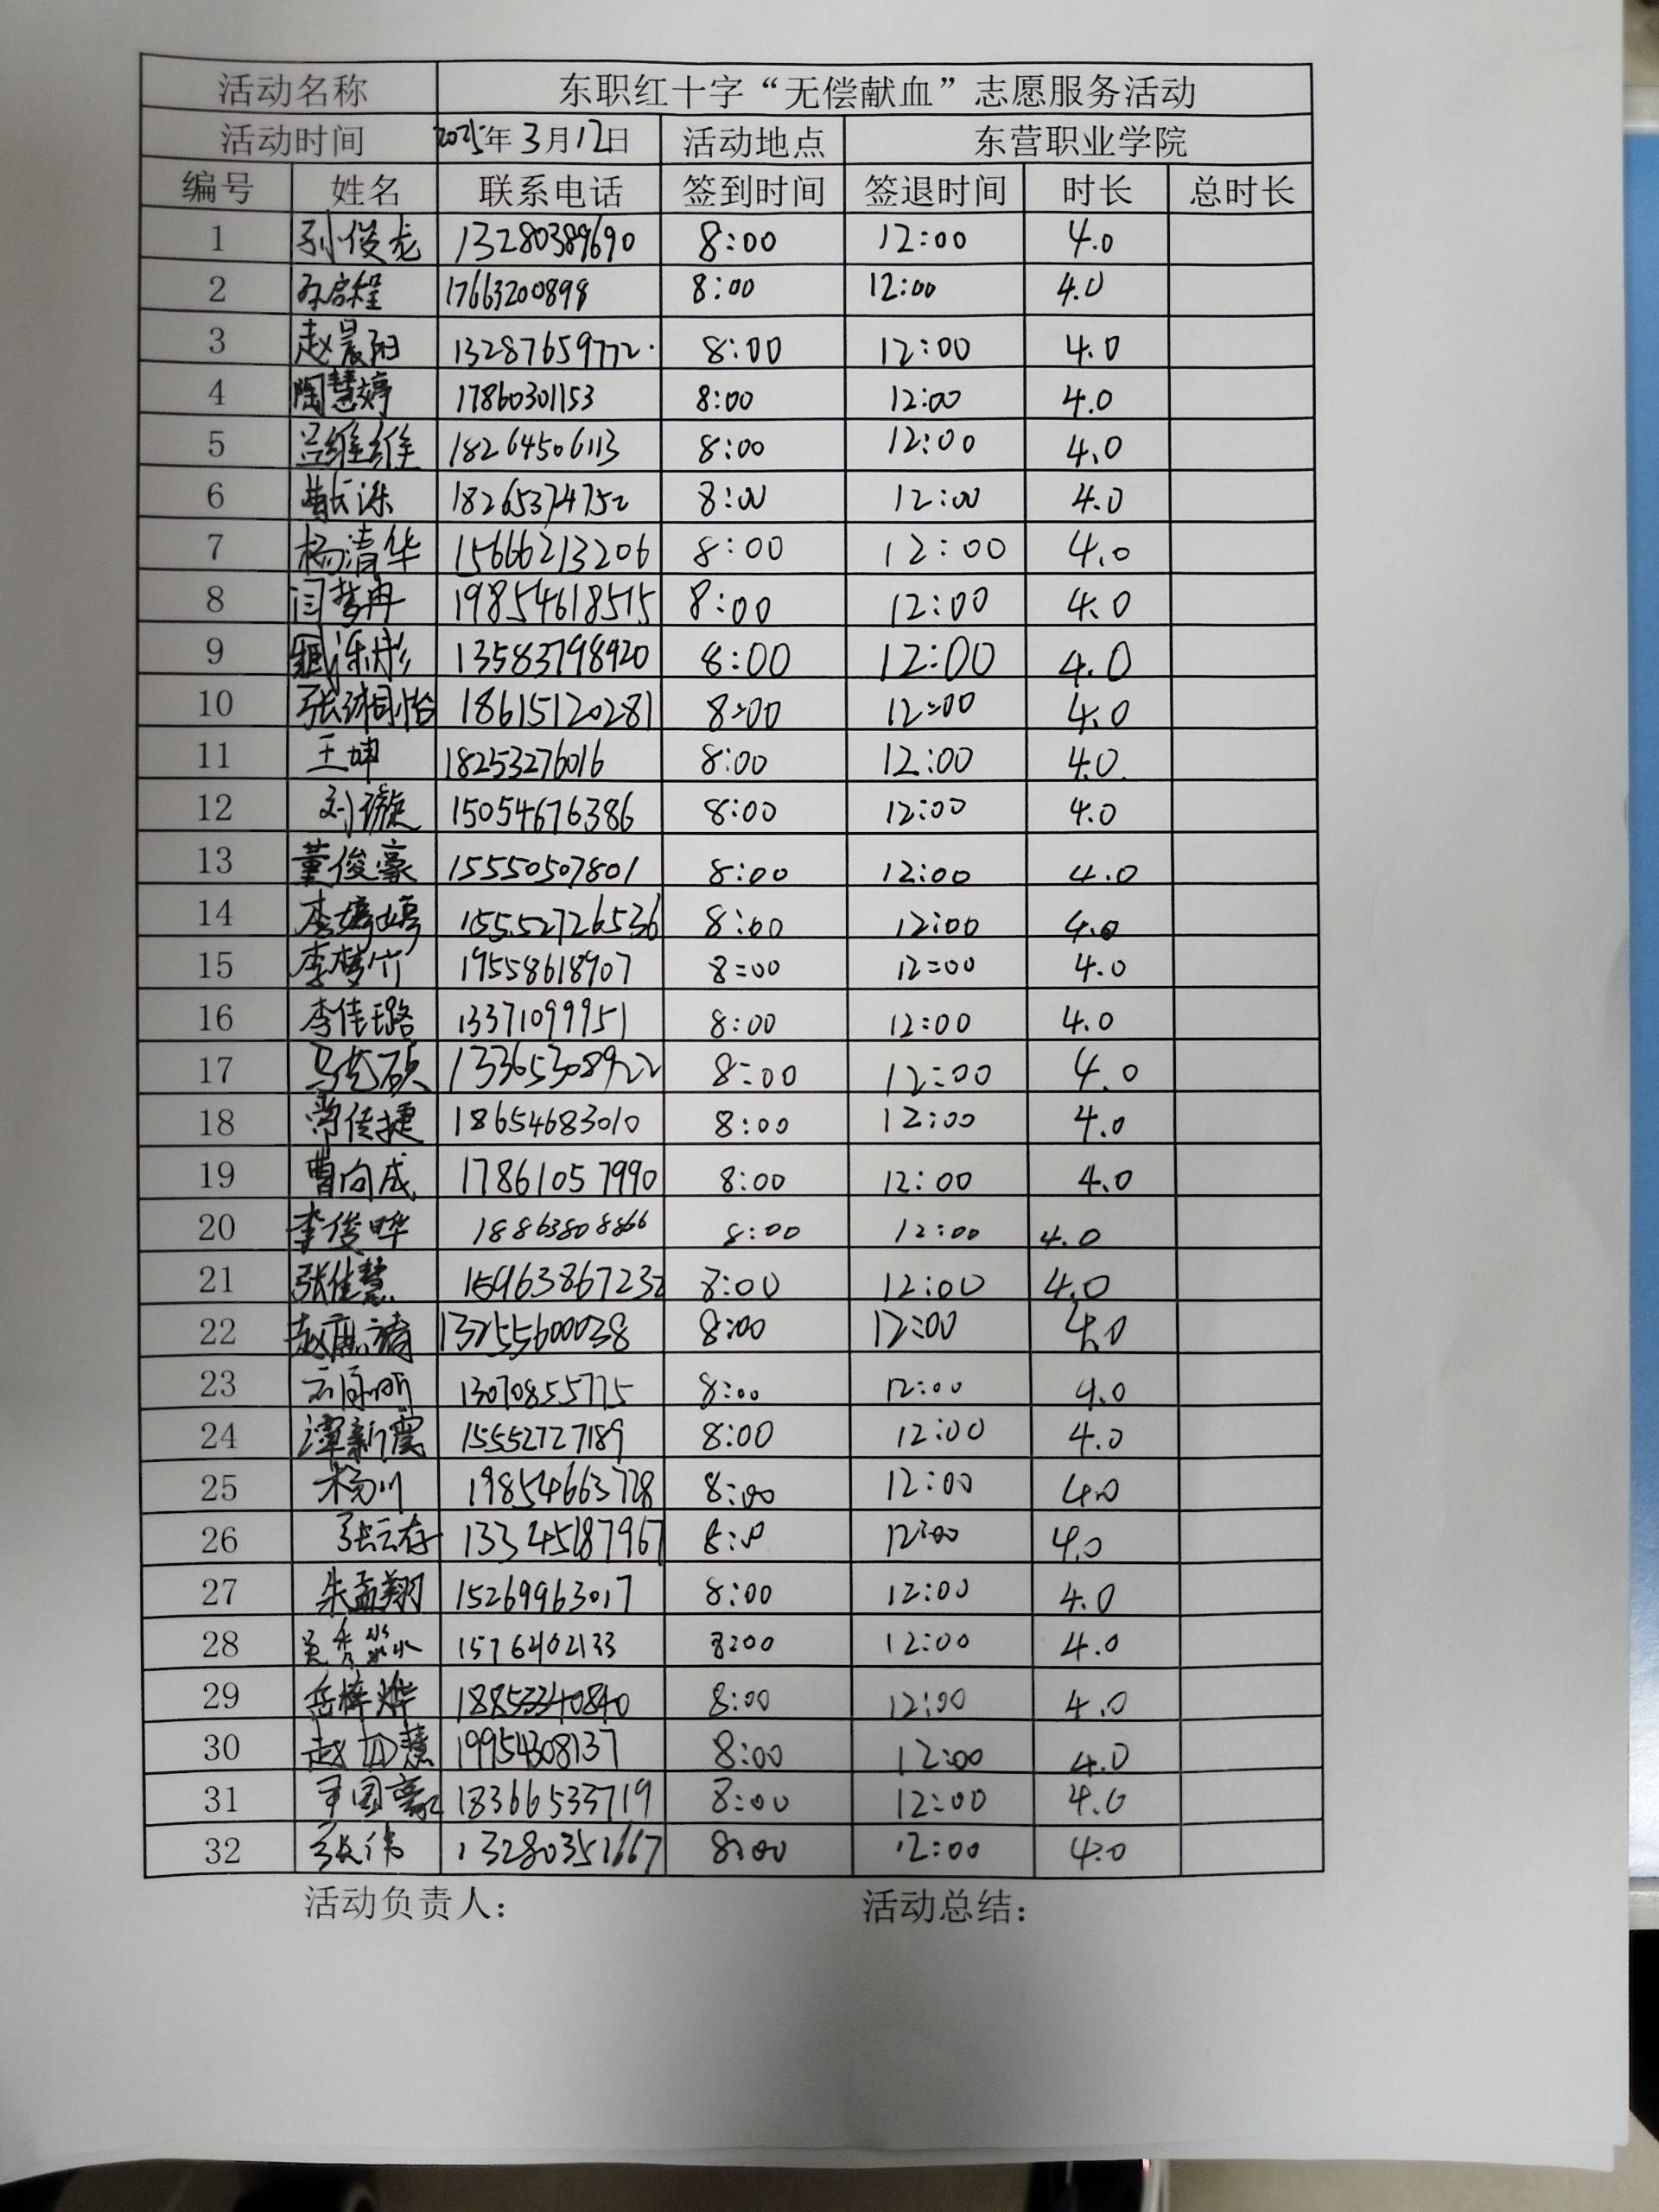 活动名称 东职红十字“无偿献血”志愿服务活动
活动时间 2025年3月12日 活动地点 东营职业学院
编号 姓名 联系电话 签到时间 签退时间 时长 总时长
1 孙俊龙 13280389690 8:00 12:00 4.0
2 孙启程 17663200898 8:00 12:00 4.0
3 赵晨阳 13287659772 8:00 12:00 4.0
4 陶慧婷 17860301153 8:00 12:00 4.0
5 吕维维 18264506113 8:00 12:00 4.0
6 18265374752 8:00 12:00 4.0
7 杨清华 15666213206 8:00 12:00 4.0
8 闫梦冉 19854618515 8:00 12:00 4.0
9 13583798920 8:00 12:00 4.0
10 18615120281 8:00 12:00 4.0
11 王坤 18253276016 8:00 12:00 4.0
12 刘璇 15054676386 8:00 12:00 4.0
13 董俊豪 15550507801 8:00 12:00 4.0
14 李婷婷 15552726536 8:00 12:00 4.0
15 李梦竹 19558618907 8:00 12:00 4.0
16 李佳璐 13371099951 8:00 12:00 4.0
17 13365308922 8:00 12:00 4.0
18 尚佳捷 18654683010 8:00 12:00 4.0
19 曹向成 17861057990 8:00 12:00 4.0
20 李俊晔 18863808866 8:00 12:00 4.0
21 张佳慧 15963867232 8:00 12:00 4.0
22 13255600038 8:00 12:00 4.0
23 13070855775 8:00 12:00 4.0
24 谭新霞 15552727189 8:00 12:00 4.0
25 杨川 19854663728 8:00 12:00 4.0
26 张云存 13345187967 12:00 4.0
27 朱孟翔 15269963017 8:00 12:00 4.0
28 8:00 12:00 4.0
29 岳梓烨 18853340840 8:00 12:00 4.0
30 赵如慧 19954308137 8:00 12:00 4.0
31 18366533719 8:00 12:00 4.0
32 张伟 13280351667 8:00 12:00 4.0
活动负责人： 活动总结：